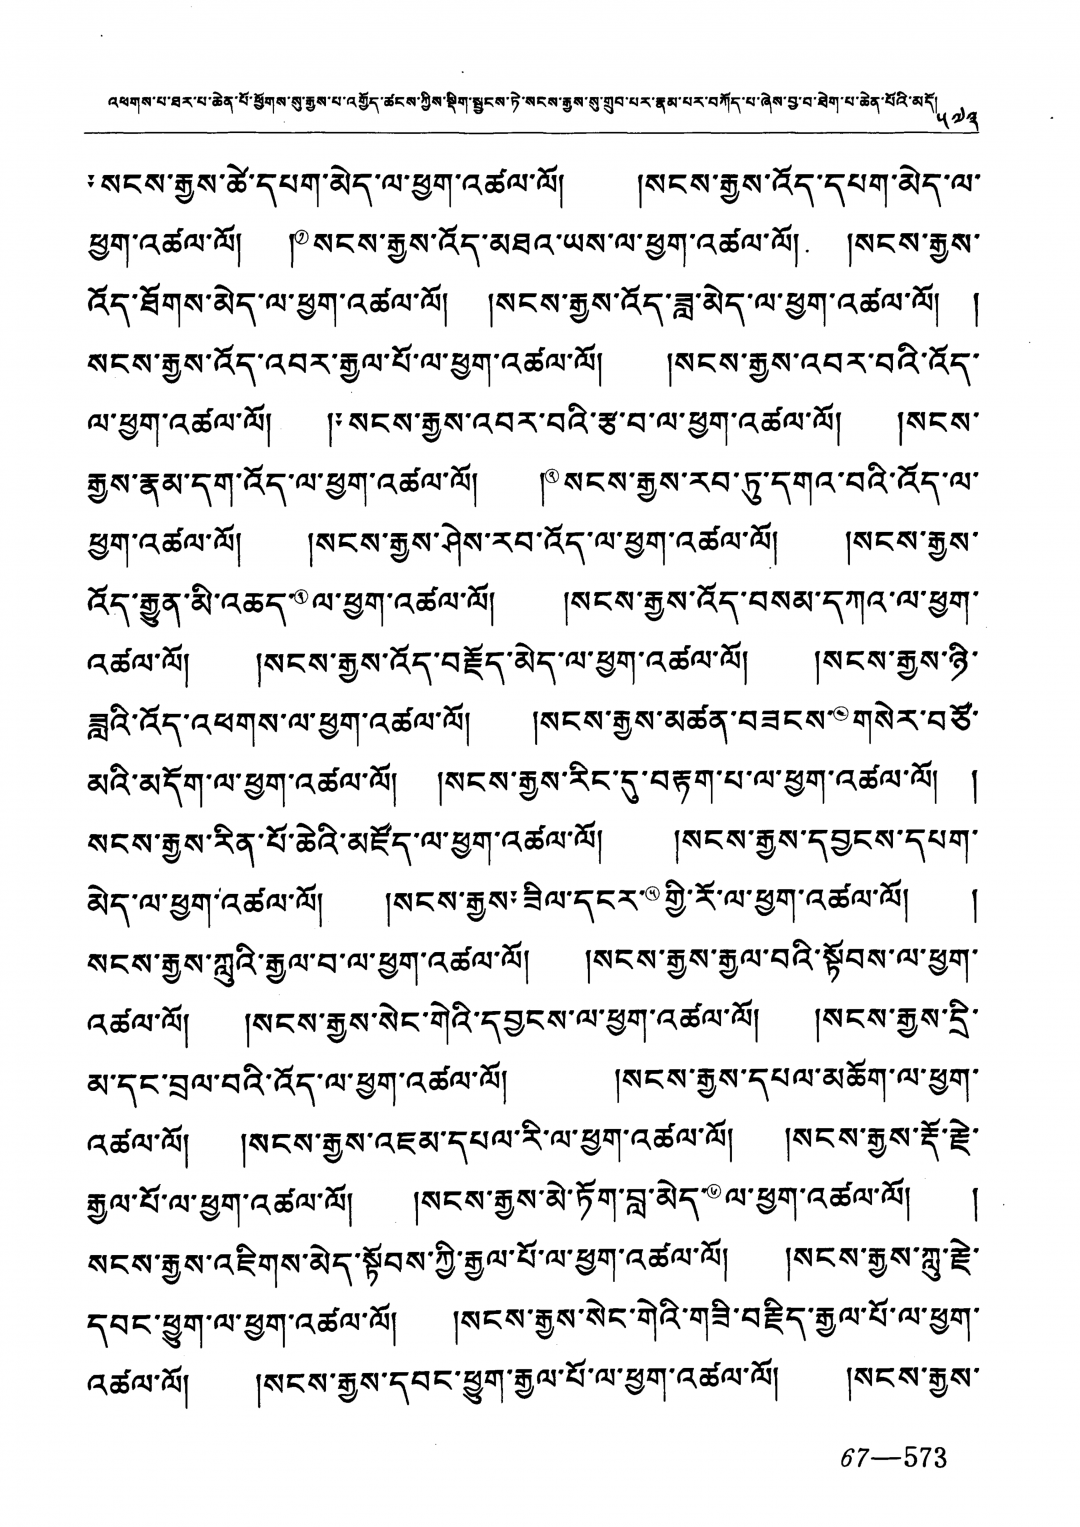 འཕགས་པ་ཐར་པ་ཆེན་པོ་ཕྱོགས་སུ་རྒྱས་པ་འགྱོད་ཚངས་ཀྱིས་སྡིག་སྦྱངས་ཏེ་སངས་རྒྱས་སུ་གྲུབ་པར་རྣམ་པར་བཀོད་པ་ཞེས་བྱ་བ་ཐེག་པ་ཆེན་པོའི་མདོ། ༥༧༣
༔སངས་རྒྱས་ཚེ་དཔག་མེད་ལ་ཕྱག་འཚལ་ལོ། །སངས་རྒྱས་འོད་དཔག་མེད་ལ་
ཕྱག་འཚལ་ལོ། །①སངས་རྒྱས་འོད་མཐའ་ཡས་ལ་ཕྱག་འཚལ་ལོ། །སངས་རྒྱས་
འོད་ཐོགས་མེད་ལ་ཕྱག་འཚལ་ལོ། །སངས་རྒྱས་འོད་ཟླ་མེད་ལ་ཕྱག་འཚལ་ལོ། །
སངས་རྒྱས་འོད་འབར་རྒྱལ་པོ་ལ་ཕྱག་འཚལ་ལོ། །སངས་རྒྱས་འབར་བའི་འོད་
ལ་ཕྱག་འཚལ་ལོ། །༔སངས་རྒྱས་འབར་བའི་རྩ་བ་ལ་ཕྱག་འཚལ་ལོ། །སངས་
རྒྱས་རྣམ་དག་འོད་ལ་ཕྱག་འཚལ་ལོ། །②སངས་རྒྱས་རབ་ཏུ་དགའ་བའི་འོད་ལ་
ཕྱག་འཚལ་ལོ། །སངས་རྒྱས་ཤེས་རབ་འོད་ལ་ཕྱག་འཚལ་ལོ། །སངས་རྒྱས་
འོད་རྒྱུན་མི་འཆད་③ལ་ཕྱག་འཚལ་ལོ། །སངས་རྒྱས་འོད་བསམ་དཀའ་ལ་ཕྱག་
འཚལ་ལོ། །སངས་རྒྱས་འོད་བརྗོད་མེད་ལ་ཕྱག་འཚལ་ལོ། །སངས་རྒྱས་ཉི་
ཟླའི་འོད་འཕགས་ལ་ཕྱག་འཚལ་ལོ། །སངས་རྒྱས་མཚན་བཟངས་④གསེར་བཙོ་
མའི་མདོག་ལ་ཕྱག་འཚལ་ལོ། །སངས་རྒྱས་རིང་དུ་བརྟག་པ་ལ་ཕྱག་འཚལ་ལོ། །
སངས་རྒྱས་རིན་པོ་ཆེའི་མཛོད་ལ་ཕྱག་འཚལ་ལོ། །སངས་རྒྱས་དབྱངས་དཔག་
མེད་ལ་ཕྱག་འཚལ་ལོ། །སངས་རྒྱས༔ཟིལ་དངར་⑤གྱི་རོ་ལ་ཕྱག་འཚལ་ལོ། །
སངས་རྒྱས་ཀླུའི་རྒྱལ་བ་ལ་ཕྱག་འཚལ་ལོ། །སངས་རྒྱས་རྒྱལ་བའི་སྟོབས་ལ་ཕྱག་
འཚལ་ལོ། །སངས་རྒྱས་སེང་གེའི་དབྱངས་ལ་ཕྱག་འཚལ་ལོ། །སངས་རྒྱས་དྲི་
མ་དང་བྲལ་བའི་འོད་ལ་ཕྱག་འཚལ་ལོ། །སངས་རྒྱས་དཔལ་མཆོག་ལ་ཕྱག་
འཚལ་ལོ། །སངས་རྒྱས་འཇམ་དཔལ་རི་ལ་ཕྱག་འཚལ་ལོ། །སངས་རྒྱས་རྡོ་རྗེ་
རྒྱལ་པོ་ལ་ཕྱག་འཚལ་ལོ། །སངས་རྒྱས་མེ་ཏོག་བླ་མེད་⑥ལ་ཕྱག་འཚལ་ལོ། །
སངས་རྒྱས་འཇིགས་མེད་སྟོབས་ཀྱི་རྒྱལ་པོ་ལ་ཕྱག་འཚལ་ལོ། །སངས་རྒྱས་ཀླུ་རྗེ་
དབང་ཕྱུག་ལ་ཕྱག་འཚལ་ལོ། །སངས་རྒྱས་སེང་གེའི་གཟི་བརྗིད་རྒྱལ་པོ་ལ་ཕྱག་
འཚལ་ལོ། །སངས་རྒྱས་དབང་ཕྱུག་རྒྱལ་པོ་ལ་ཕྱག་འཚལ་ལོ། །སངས་རྒྱས་
67—573